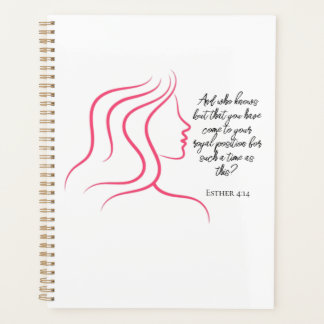 And who knows
but that you have
come to your
royal position for
such a time as
this?
Esther 4:14